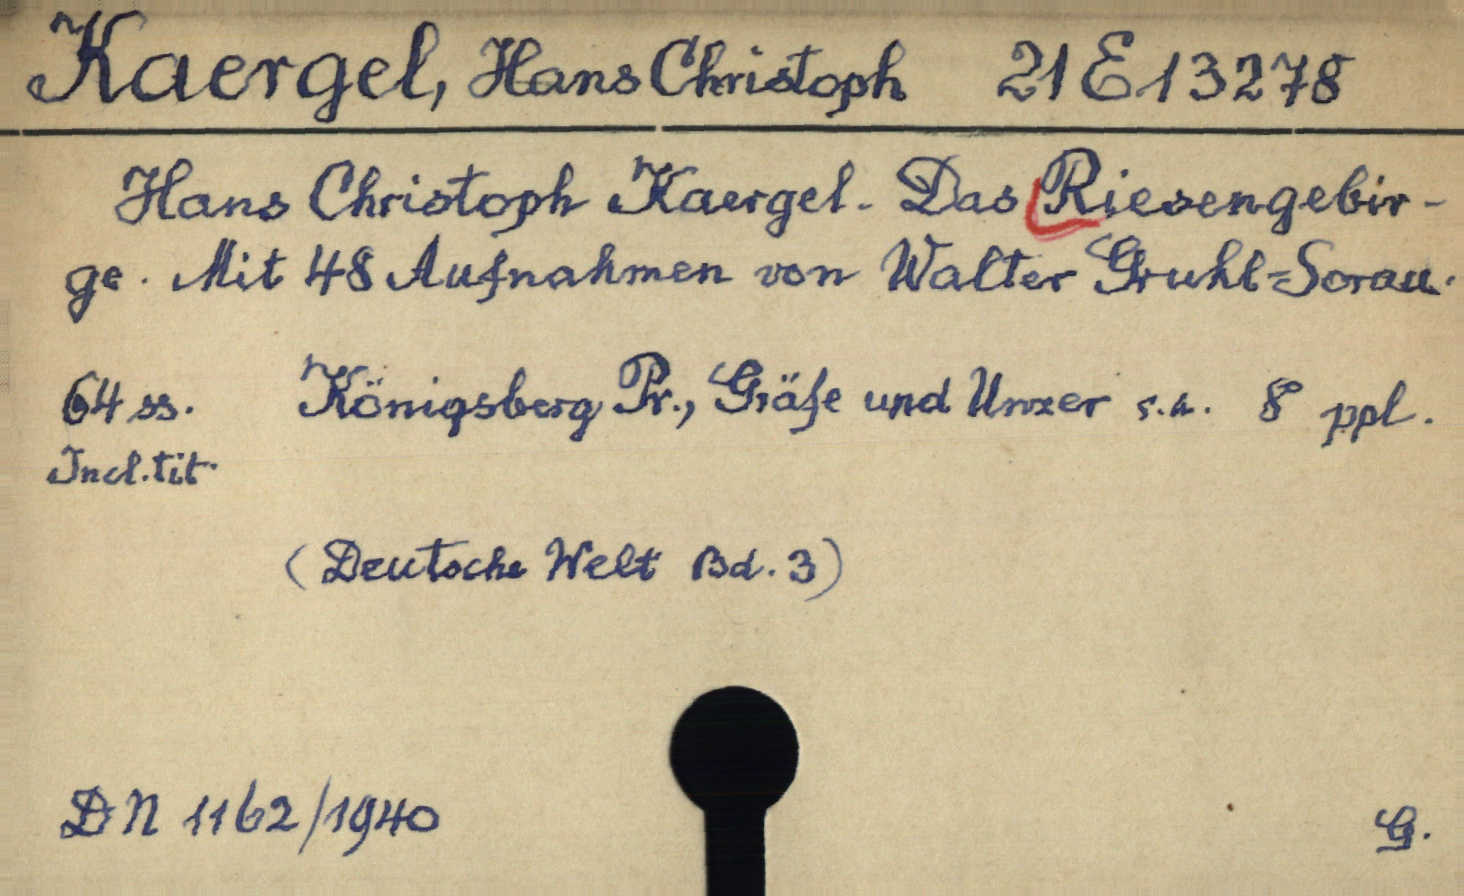 Kaergel, Hans Christoph 21 E 13278
Hans Christoph Kaergel. Das Riesengebir-
ge. Mit 48 Aufnahmen von Walter Gruhl=Sorau.
64 ss. Königsberg Pr., Gräfe und Unzer s.a. 8° ppl.
Incl. tit.
(Deutsche Welt Bd. 3)
DN 1162/1940
G.